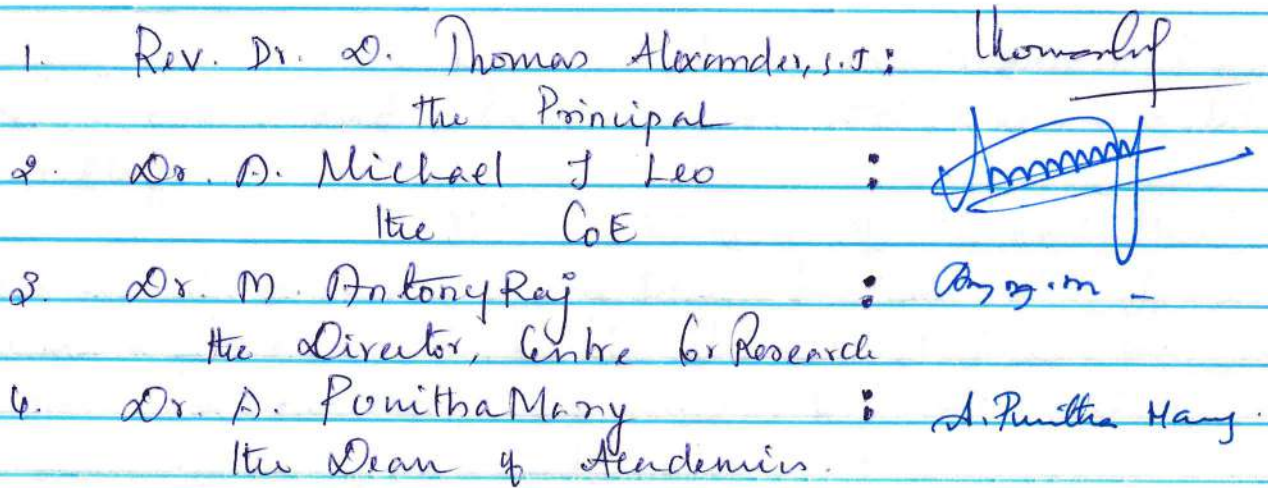 1. Rev. Dr. D. Thomas Alexander, s.J :
the Principal
2. Dr. A. Michael J Leo :
the CoE
3. Dr. M. Antony Raj :
the Director, Centre for Research
4. Dr. A. Punitha Mary : A. Punitha Mary.
the Dean of Academics.